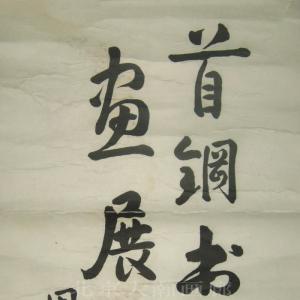 首鋼书
画展